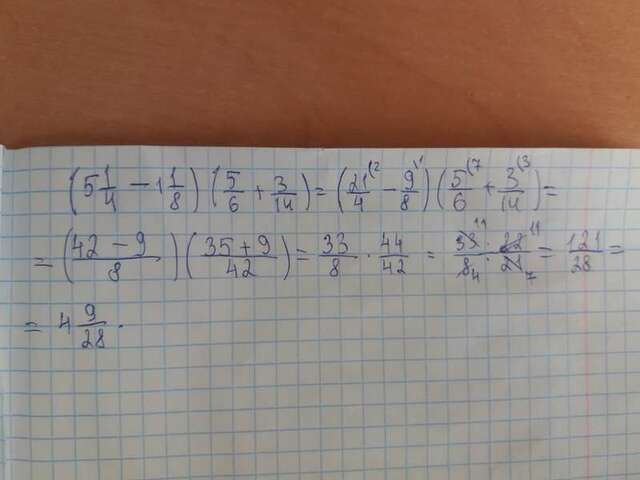 (5 1/4 − 1 1/8)(5/6 + 3/14) = (21/4 ⁽² − 9/8 ⁽¹)(5/6 ⁽⁷ + 3/14 ⁽³) =
= (42 − 9 / 8)(35 + 9 / 42) = 33/8 · 44/42 = 33 · 22 / 8 · 21 11 11 4 7 = 121/28 =
= 4 9/28.